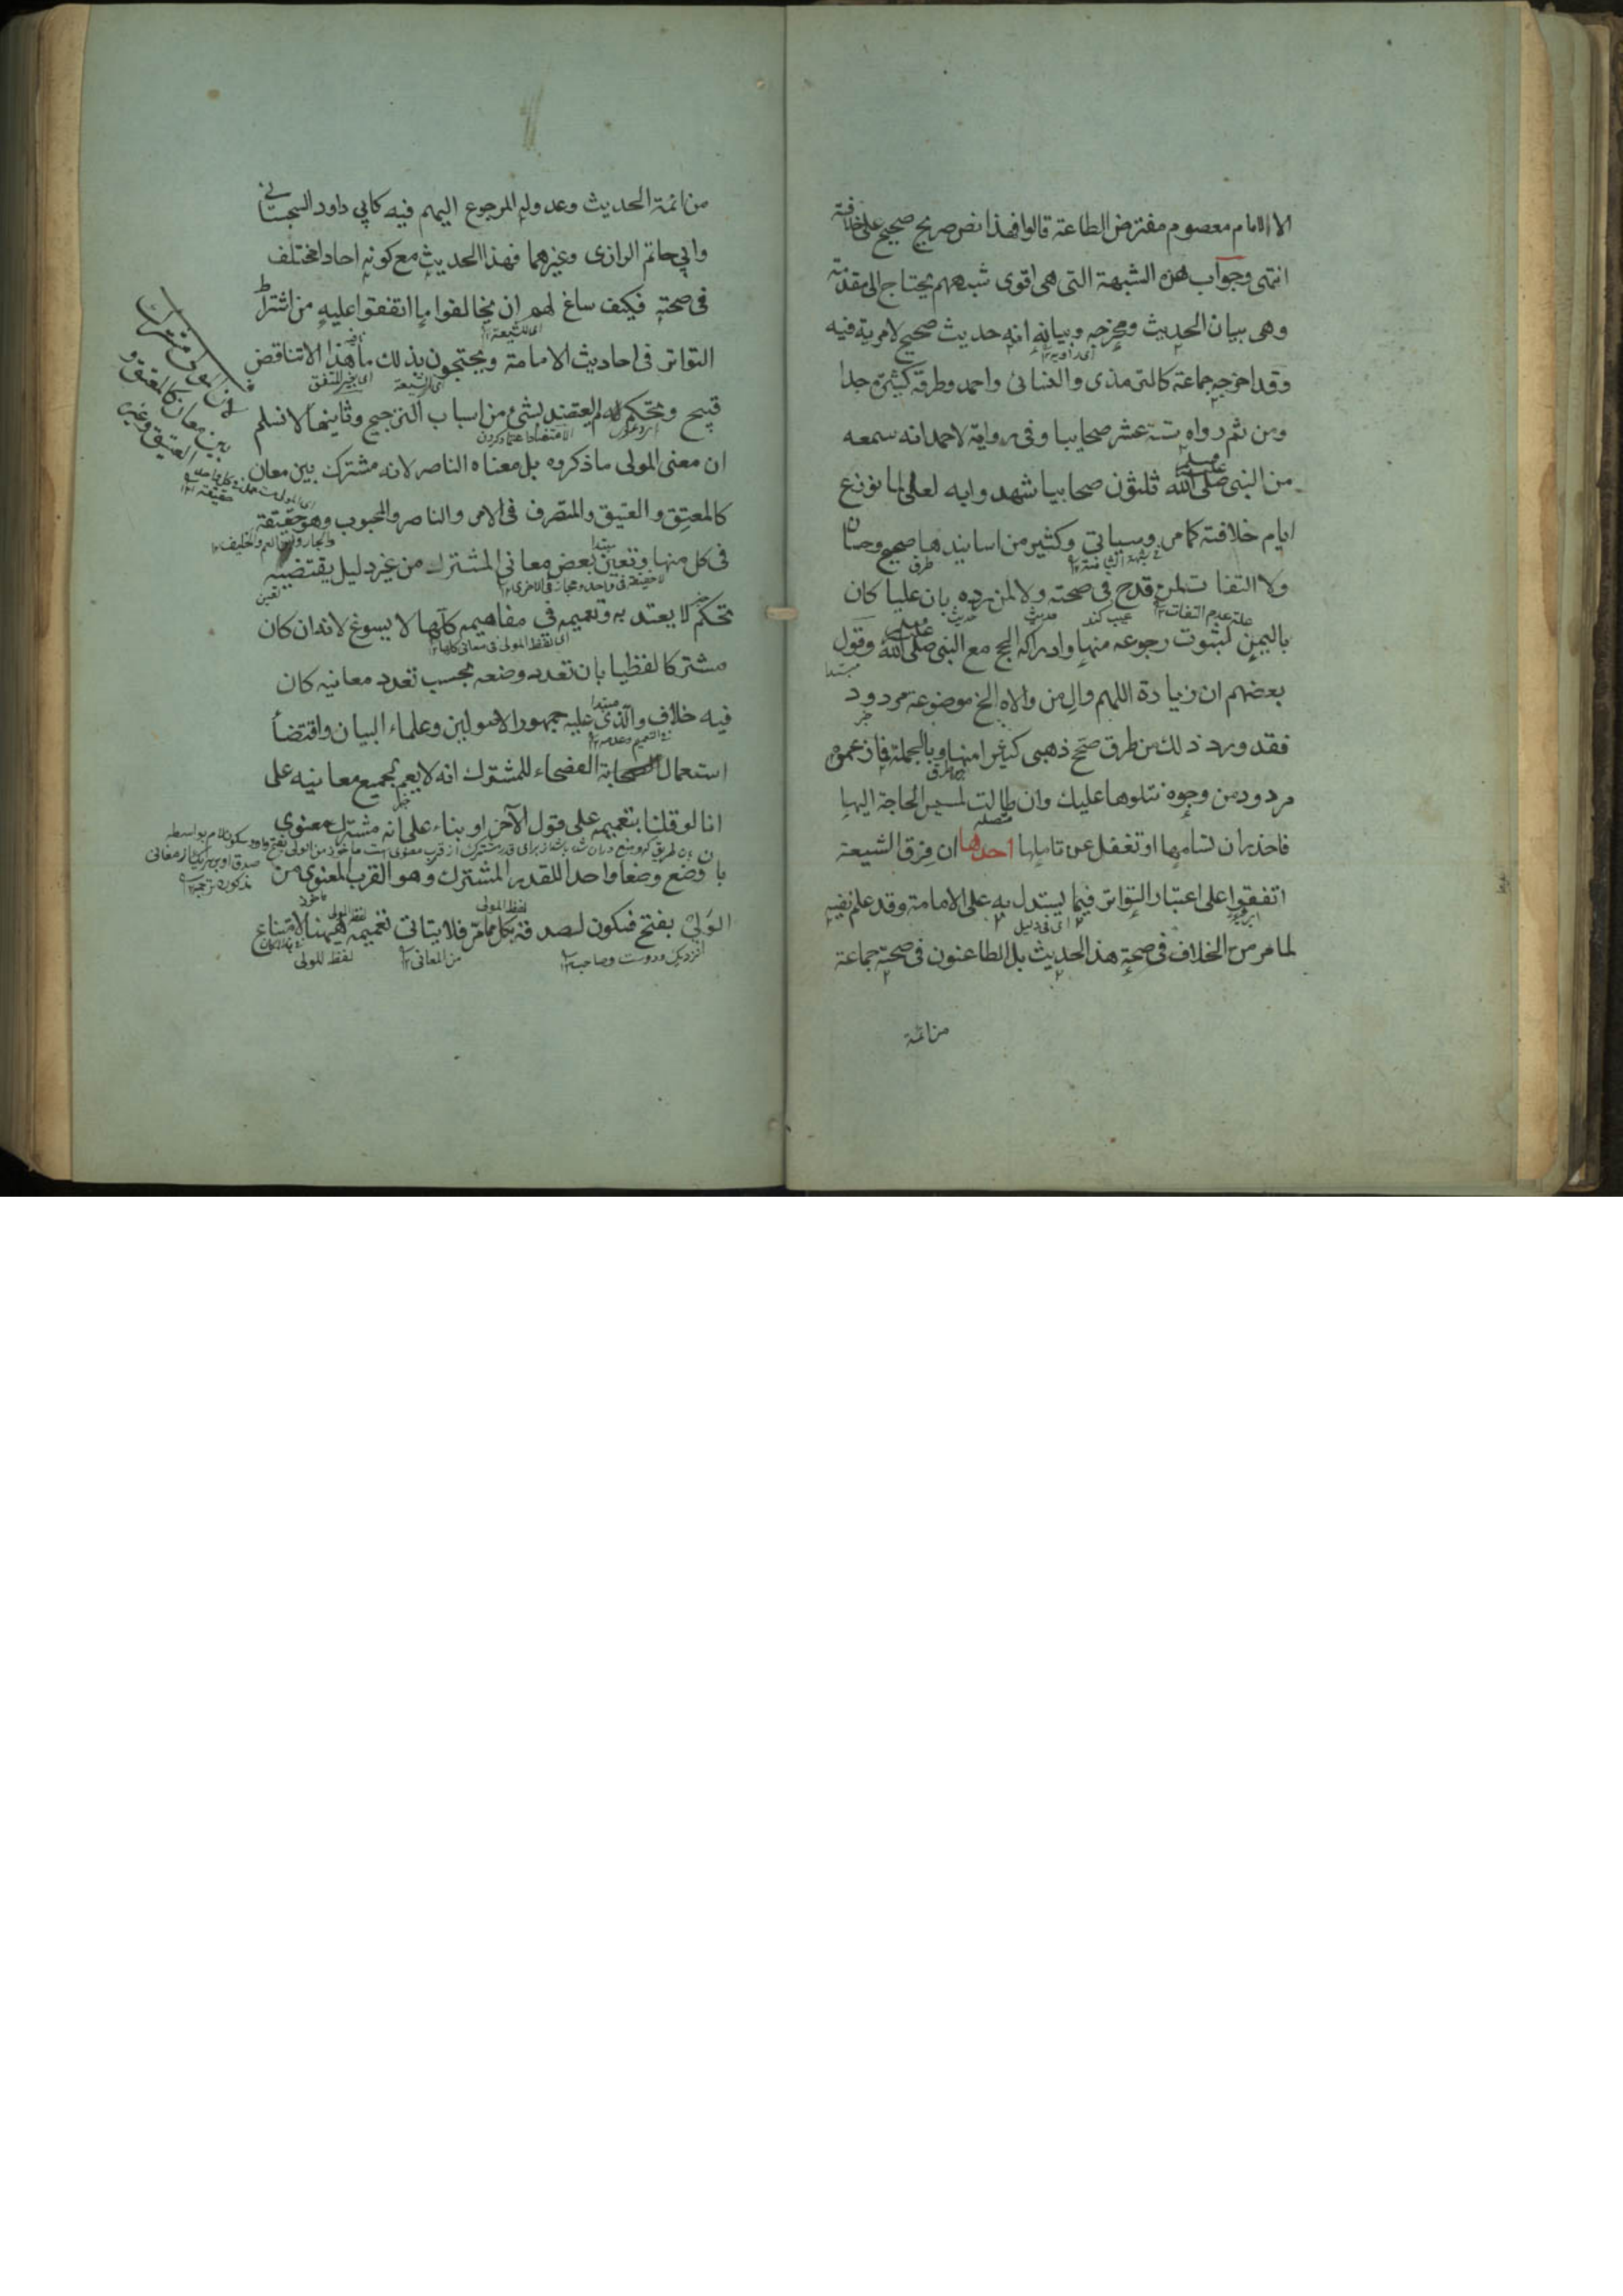 الا الامام معصوم مفترض الطاعة قالوا فهذا نص صريح صحيح على خلافته
انتهى وجواب هذه الشبهة التى هى اقوى شبههم يحتاج الى مقدمة
وهى بيان الحديث ومخرجه وبيانه انه حديث صحيح لا مرية فيه
وقد اخرجه جماعة كالترمذى والنسائى واحمد وطرقه كثيرة جدا
ومن ثم رواه ستة عشر صحابيا وفى رواية لاحمد انه سمعه
من النبى صلى الله عليه وسلم ثلثون صحابيا شهدوا به لعلى لما نوزع
ايام خلافته كما مر وسياتى وكثير من اسانيدها صحيح وحسان
طرق
ولا التفات لمن قدح فى صحته ولا لمن رده بان عليا كان
علة عدم التفات عيب كند حديث حديث
باليمن لثبوت رجوعه منها وادراكه الحج مع النبى صلى الله عليه وسلم وقول
مبتدا
بعضهم ان زيادة اللهم وال من والاه الخ موضوعة مردود
خبر
فقد ورد ذلك من طرق صحح ذهبى كثيرا منها وبالجملة فما زعموه
مردود من وجوه نتلوها عليك وان طالت لمسيس الحاجة اليها
متصله
فاحذر ان تسامها او تغفل عن تاملها احدها ان فرق الشيعة
اتفقوا على اعتبار التواتر فيما يستدل به على الامامة وقد علم نفيه
اى فى دليل
لما مر من الخلاف فى صحة هذا الحديث بل الطاعنون فى صحته جماعة
من ائمة
من ائمة الحديث وعدوله المرجوع اليهم فيه كابى داود السجستانى
وابى حاتم الرازى وغيرهما فهذا الحديث مع كونه احادا مختلف
فى صحته فكيف ساغ لهم ان يخالفوا ما اتفقوا عليه من اشتراط
اى للشيعة
التواتر فى احاديث الامامة ويحتجون بذلك ما هذا الا تناقض
اى الشيعة
قبيح وتحكم لم يعتضد بشئ من اسباب الترجيح وثانيها لا نسلم
ان معنى المولى ما ذكروه بل معناه الناصر لانه مشترك بين معان
كالمعتق والعتيق والمتصرف فى الامر والناصر والمحبوب وهو حقيقة
فى كل منها وتعيين بعض معانى المشترك من غير دليل يقتضيه
لا حقيقة فى واحد ومجاز فى الاخرى
تحكم لا يعتد به وتعميمه فى مفاهيمه كلها لا يسوغ لانه ان كان
اى لفظ المولى فى معانى كلها
مشتركا لفظيا بان تعدد وضعه بحسب تعدد معانيه كان
مبتدا
فيه خلاف والذى عليه جمهور الاصولين وعلماء البيان واقتضا
فى التعميم وعدمه
استعمال الفصحاء للمشترك انه لا يعم جميع معانيه على
خبر
انا لو قلنا بتعميمه على قول الآخر او بناء على انه مشترك معنوى
بان وضع وضعا واحدا للقدر المشترك وهو القرب المعنوى من
لفظ المولى
الولى بفتح فسكون لصدقه بكل مما مر فلا يتاتى تعميمه ههنا لامتناع
نزديك ودوست وصاحب من المعانى لفظ المولى
بين معان كالمعتق و
العتيق وغيره